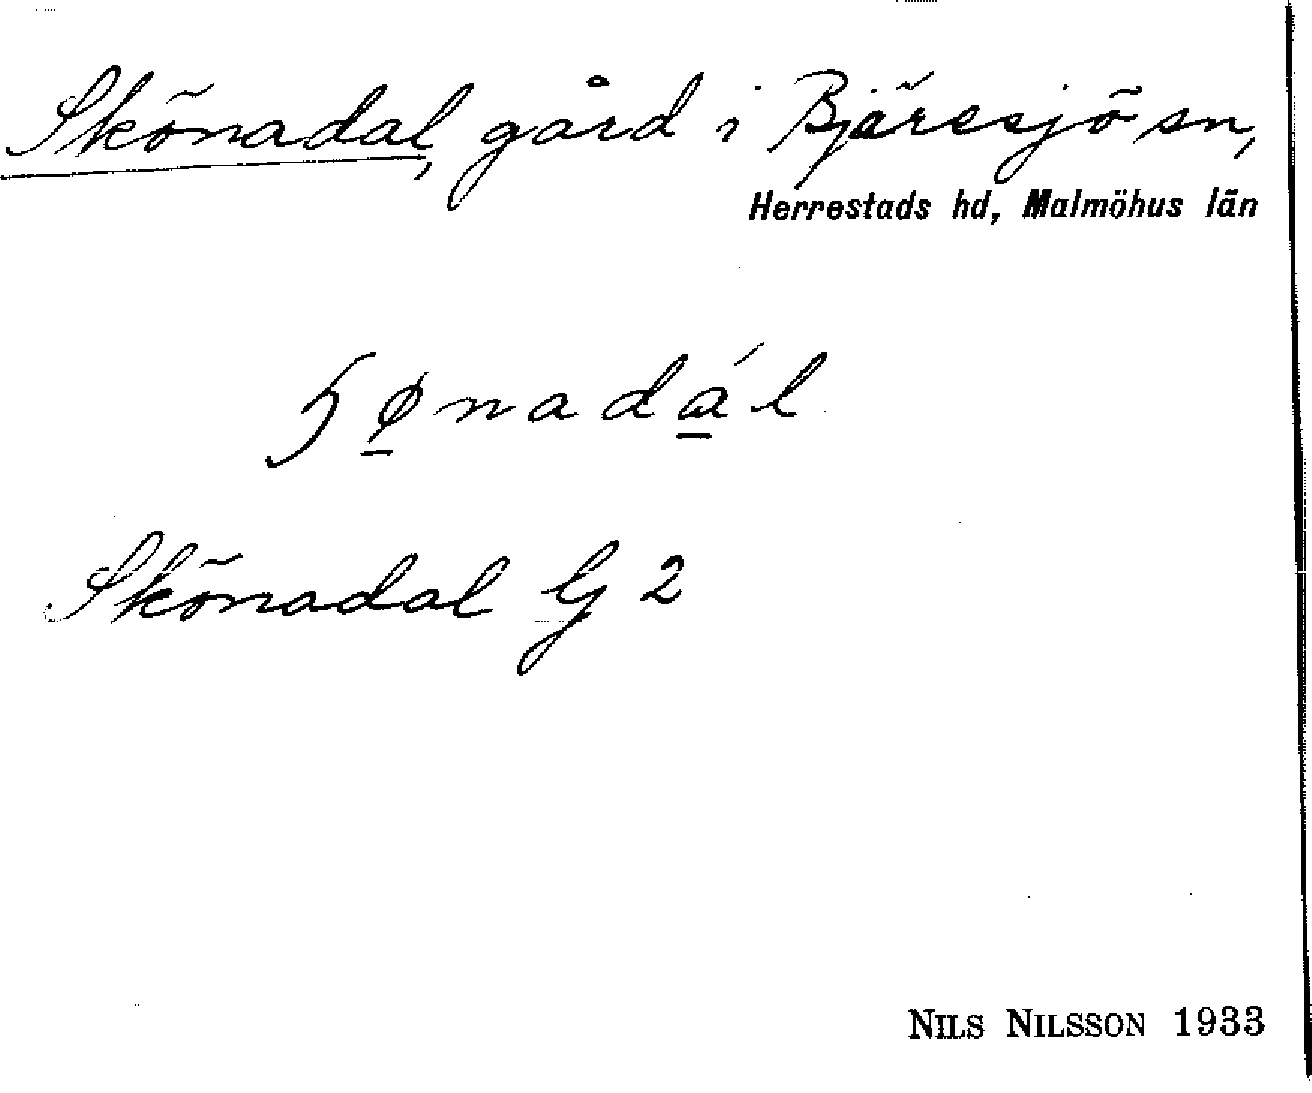 Skönadal, gård i Bjäresjö sn,
Herrestads hd, Malmöhus län
ʃø̲nadá̲l
Skönadal G 2
NILS NILSSON 1933